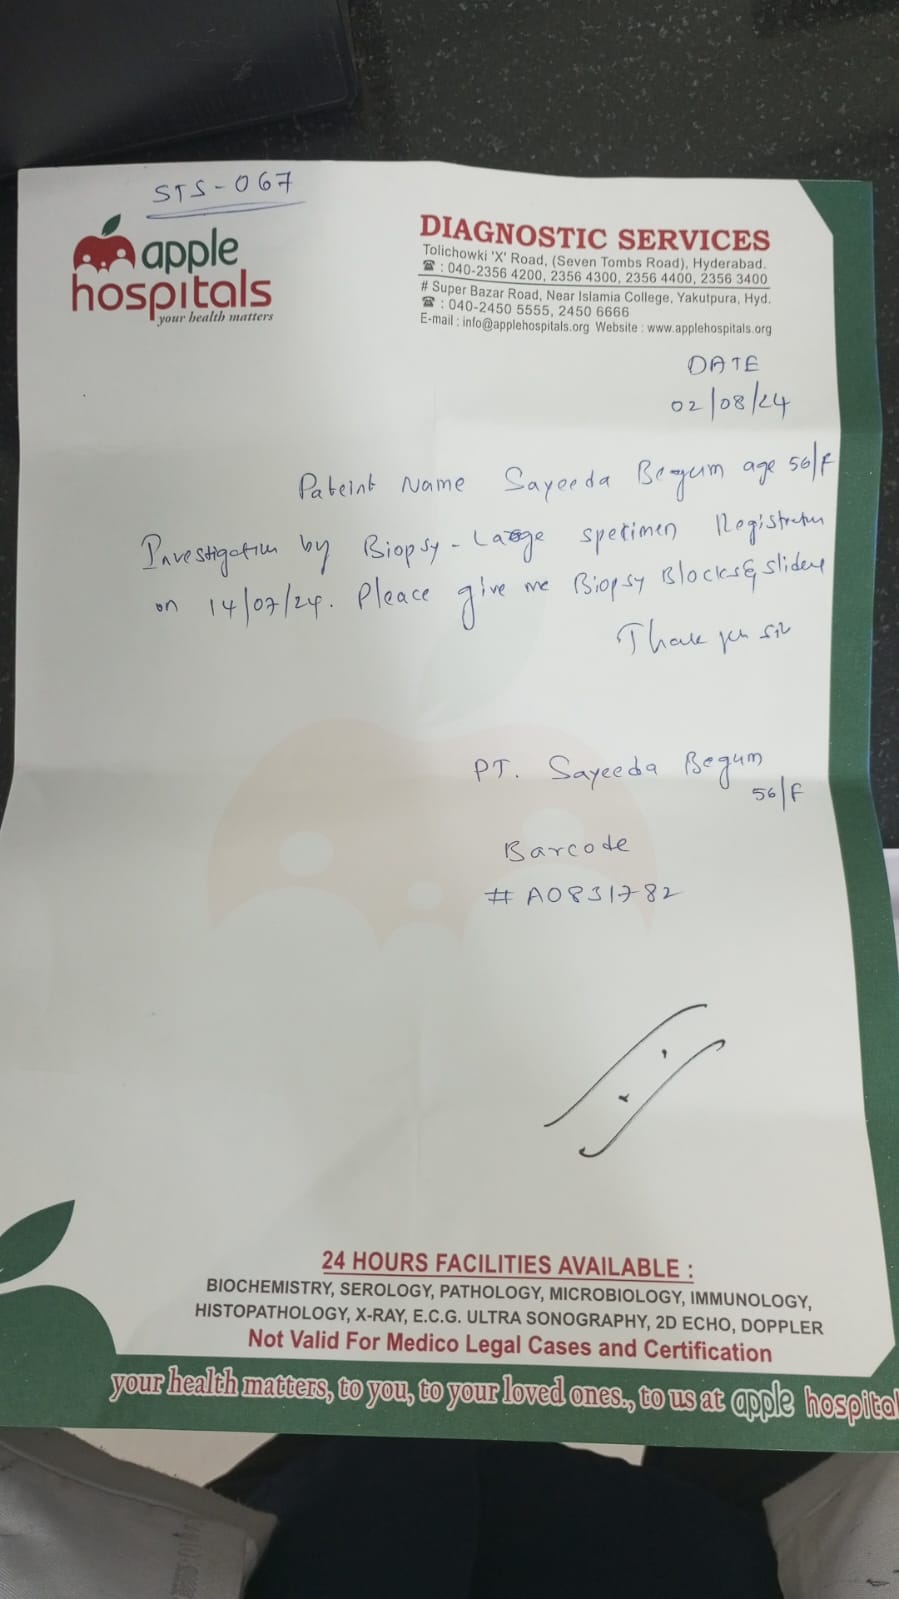 STS-067
apple
hospitals
your health matters
DIAGNOSTIC SERVICES
Tolichowki 'X' Road, (Seven Tombs Road), Hyderabad.
☎ : 040-2356 4200, 2356 4300, 2356 4400, 2356 3400
# Super Bazar Road, Near Islamia College, Yakutpura, Hyd.
☎ : 040-2450 5555, 2450 6666
E-mail : info@applehospitals.org Website : www.applehospitals.org
DATE
02/08/24
Pateint Name Sayeeda Begum age 56/F
Investigation by Biopsy - Large specimen Registration
on 14/07/24. Pleace give me Biopsy Blocks & slides
Thank you sir
PT. Sayeeda Begum
56/F
Barcode
# A0831782
24 HOURS FACILITIES AVAILABLE :
BIOCHEMISTRY, SEROLOGY, PATHOLOGY, MICROBIOLOGY, IMMUNOLOGY,
HISTOPATHOLOGY, X-RAY, E.C.G. ULTRA SONOGRAPHY, 2D ECHO, DOPPLER
Not Valid For Medico Legal Cases and Certification
your health matters, to you, to your loved ones., to us at apple hospital